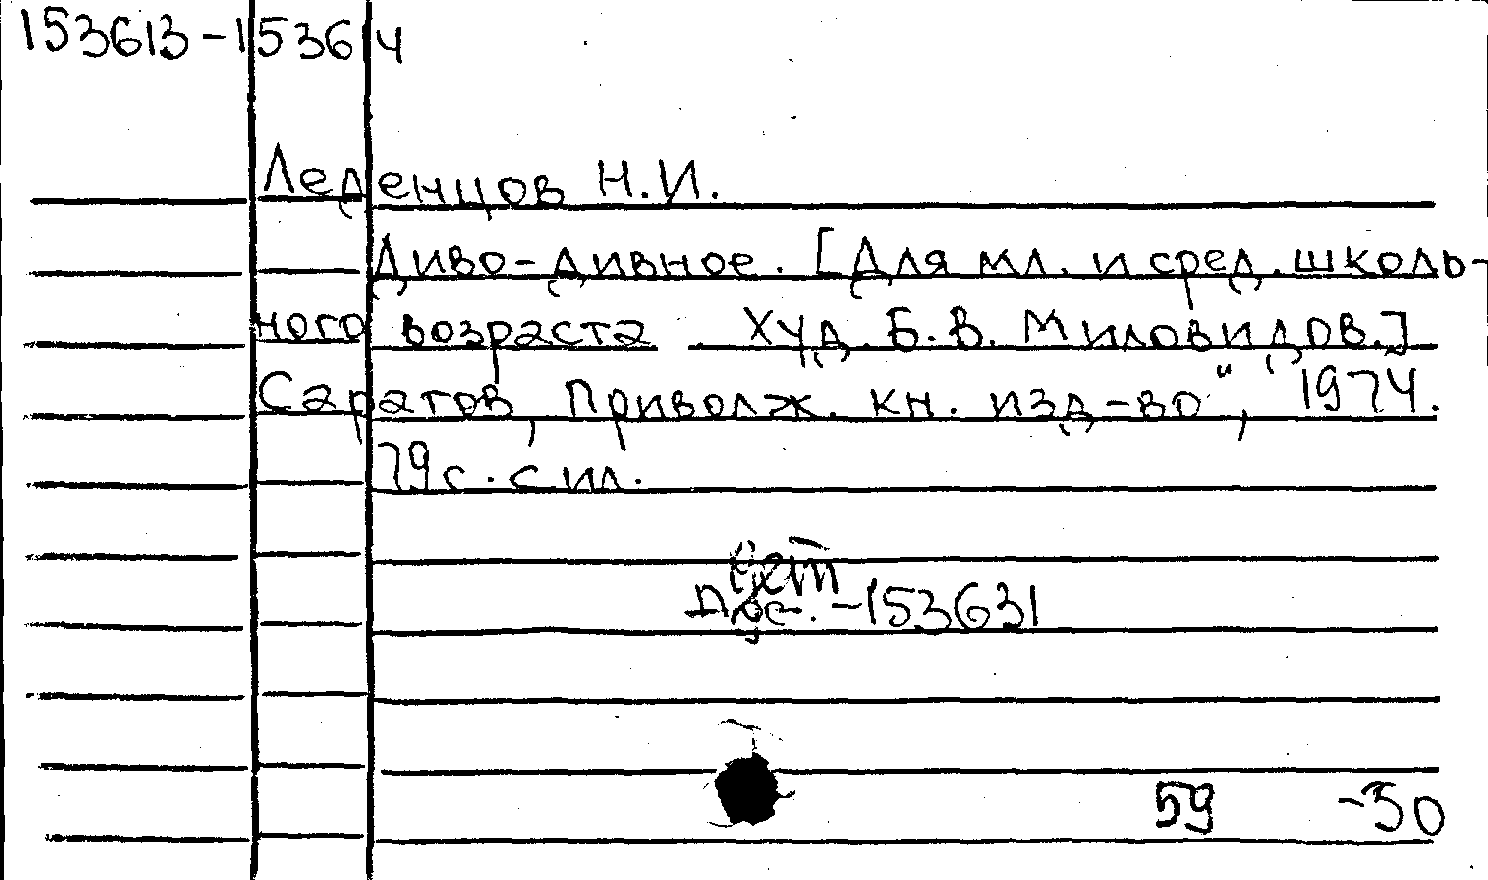 153613-153614
Леденцов Н.И.
Диво-дивное. [Для мл. и сред. школь-
ного возраста. Худ. Б.В. Миловидов.]
Саратов, Приволж. кн. изд-во", 1974.
79 с. с ил.
дет
-153631
59 -30